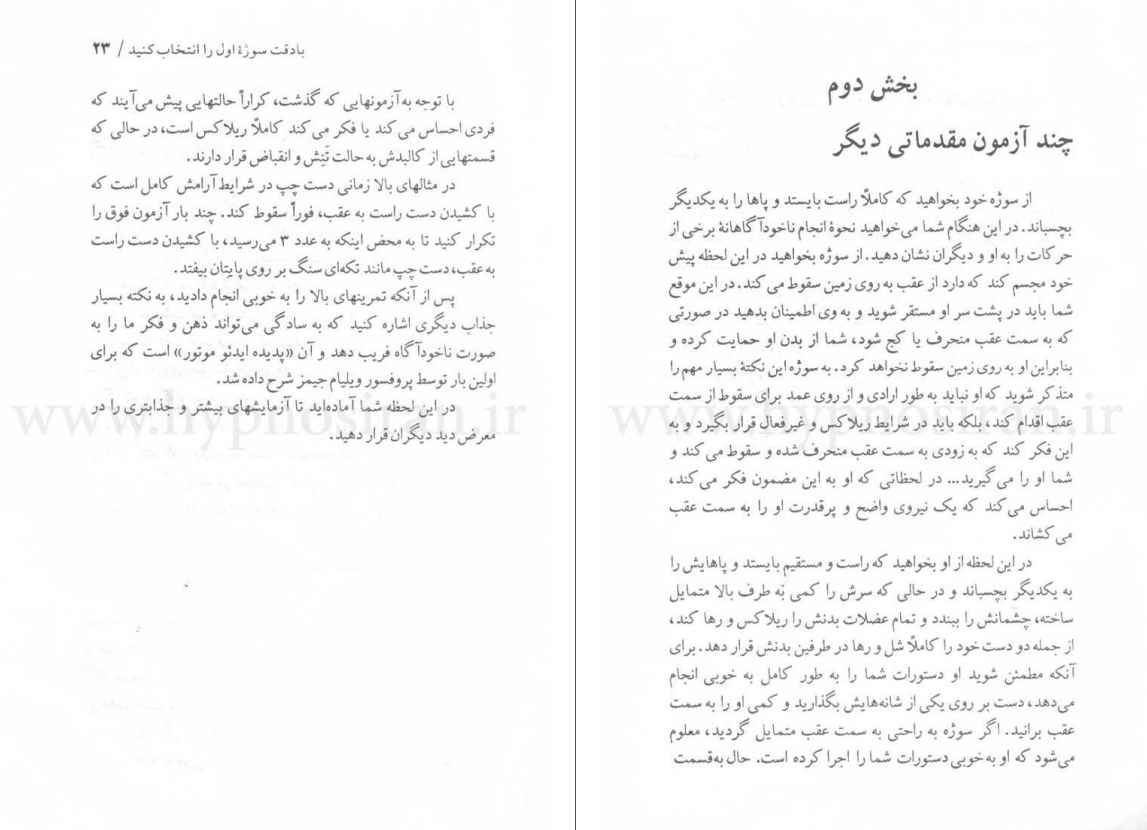 بادقت سوژهٔ اول را انتخاب کنید / ۲۳
با توجه به آزمونهایی که گذشت، کراراً حالتهایی پیش می‌آیند که
فردی احساس می‌کند یا فکر می‌کند کاملاً ریلاکس است، در حالی که
قسمتهایی از کالبدش به حالت تَنِش و انقباض قرار دارند.
در مثالهای بالا زمانی دست چپ در شرایط آرامش کامل است که
با کشیدن دست راست به عقب، فوراً سقوط کند. چند بار آزمون فوق را
تکرار کنید تا به محض اینکه به عدد ۳ می‌رسید، با کشیدن دست راست
به عقب، دست چپ مانند تکه‌ای سنگ بر روی پایتان بیفتد.
پس از آنکه تمرینهای بالا را به خوبی انجام دادید، به نکته بسیار
جذاب دیگری اشاره کنید که به سادگی می‌تواند ذهن و فکر ما را به
صورت ناخودآگاه فریب دهد و آن «پدیده ایدئو موتور» است که برای
اولین بار توسط پروفسور ویلیام جیمز شرح داده شد.
در این لحظه شما آماده‌اید تا آزمایشهای بیشتر و جذابتری را در
معرض دید دیگران قرار دهید.
www.hypnosiran.ir
بخش دوم
چند آزمون مقدماتی دیگر
از سوژه خود بخواهید که کاملاً راست بایستد و پاها را به یکدیگر
بچسباند. در این هنگام شما می‌خواهید نحوهٔ انجام ناخودآگاهانهٔ برخی از
حرکات را به او و دیگران نشان دهید. از سوژه بخواهید در این لحظه پیش
خود مجسم کند که دارد از عقب به روی زمین سقوط می‌کند. در این موقع
شما باید در پشت سر او مستقر شوید و به وی اطمینان بدهید در صورتی
که به سمت عقب منحرف یا کج شود، شما از بدن او حمایت کرده و
بنابراین او به روی زمین سقوط نخواهد کرد. به سوژه این نکتهٔ بسیار مهم را
متذکر شوید که او نباید به طور ارادی و از روی عمد برای سقوط از سمت
عقب اقدام کند، بلکه باید در شرایط ریلاکس و غیرفعال قرار بگیرد و به
این فکر کند که به زودی به سمت عقب منحرف شده و سقوط می‌کند و
شما او را می‌گیرید... در لحظاتی که او به این مضمون فکر می‌کند،
احساس می‌کند که یک نیروی واضح و پرقدرت او را به سمت عقب
می‌کشاند.
در این لحظه از او بخواهید که راست و مستقیم بایستد و پاهایش را
به یکدیگر بچسباند و در حالی که سرش را کمی به طرف بالا متمایل
ساخته، چشمانش را ببندد و تمام عضلات بدنش را ریلاکس و رها کند،
از جمله دو دست خود را کاملاً شل و رها در طرفین بدنش قرار دهد. برای
آنکه مطمئن شوید او دستورات شما را به طور کامل به خوبی انجام
می‌دهد، دست بر روی یکی از شانه‌هایش بگذارید و کمی او را به سمت
عقب برانید. اگر سوژه به راحتی به سمت عقب متمایل گردید، معلوم
می‌شود که او به خوبی دستورات شما را اجرا کرده است. حال به‌قسمت
www.hypnosiran.ir